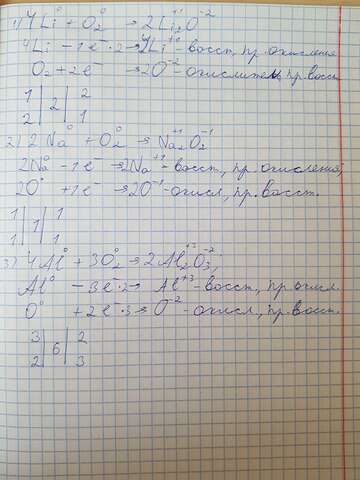 1) 4Li⁰ + O₂⁰ → 2Li₂⁺¹O⁻²
4Li - 1e⁻·2 → 4Li⁺¹ - восст, пр. окисления
O₂ + 2e⁻ → 2O⁻² - окислитель, пр. восст
1 | 2 | 2
2 | | 1
2) 2Na⁰ + O₂⁰ → Na₂⁺¹O₂⁻¹
2Na⁰ - 1e⁻ → 2Na⁺¹ - восст, пр. окисления,
2O⁰ + 1e⁻ → 2O⁻¹ - окисл, пр. восст.
1 | 1 | 1
1 | | 1
3) 4Al⁰ + 3O₂⁰ → 2Al₂⁺³O₃⁻²
Al⁰ - 3e⁻·2 → Al⁺³ - восст, пр. окисл.
O⁰ + 2e⁻·3 → O⁻² - окисл, пр. восст.
3 | 6 | 2
2 | | 3